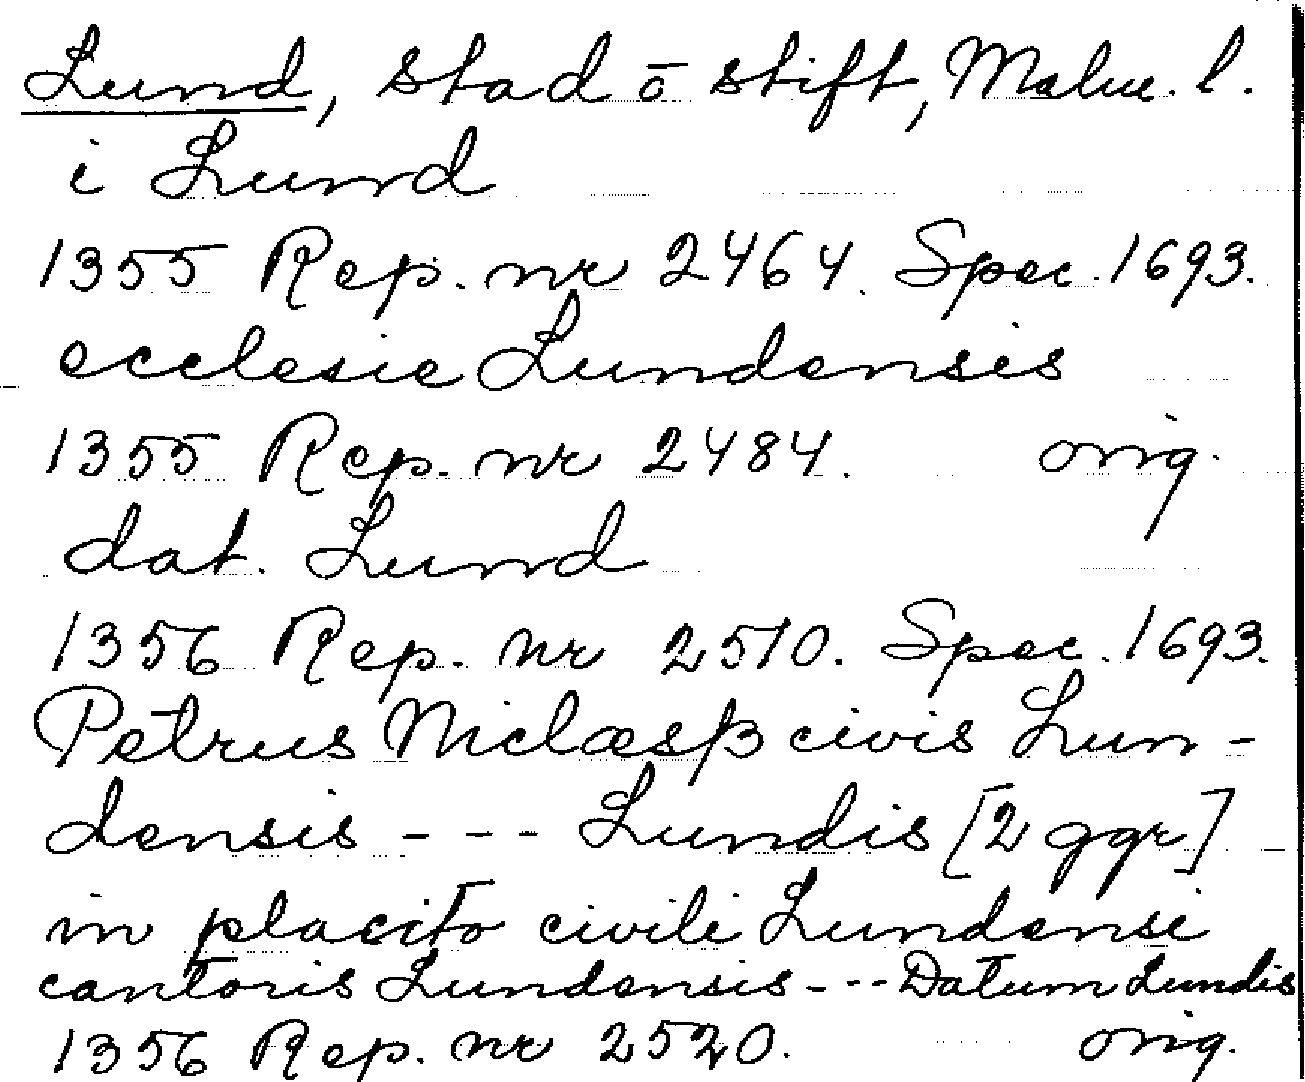 Lund, stad ō stift, Malm. l.
i Lund
1355 Rep. nr 2464. Spec. 1693.
ecclesie Lundensis
1355 Rep. nr 2484. orig.
dat. Lund
1356 Rep. nr 2510. Spec. 1693.
Petrus Niclæsß civis Lun-
densis --- Lundis [2 ggr]
in placito civili Lundensi
cantoris Lundensis --- Datum Lundis
1356 Rep. nr 2520. orig.